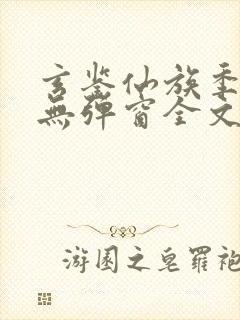 玄鉴仙族季
無彈窗全文
游園之皂羅袍